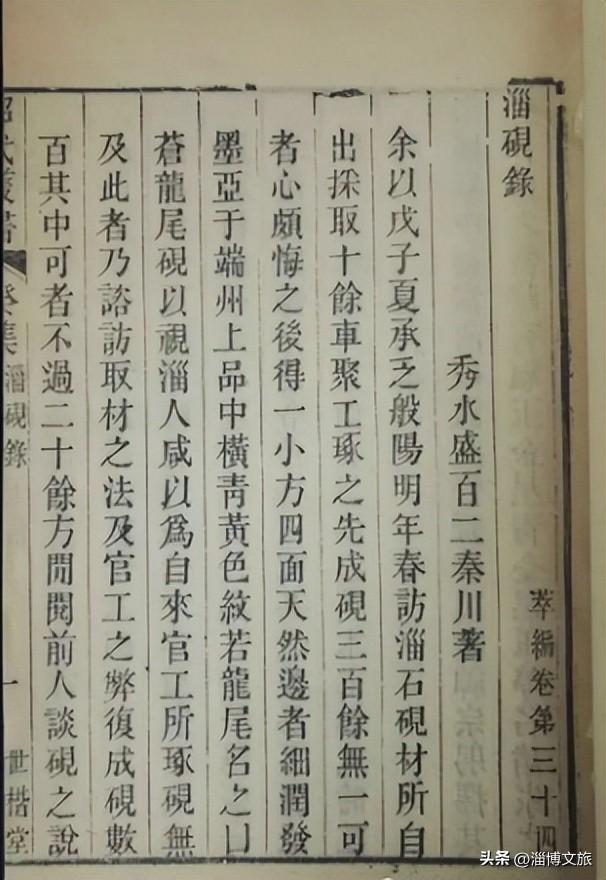 淄硯錄
萃編卷第三十四
秀水盛百二秦川著
余以戊子夏承乏般陽明年春訪淄石硯材所自
出採取十餘車聚工琢之先成硯三百餘無一可
者心頗悔之後得一小方四面天然邊者細潤發
墨亞于端州上品中橫青黃色紋若龍尾名之曰
蒼龍尾硯以視淄人咸以爲自來官工所琢硯無
及此者乃諮訪取材之法及官工之弊復成硯數
百其中可者不過二十餘方閒閱前人談硯之說
昭代叢書 癸集 淄硯錄 一 世楷堂
头条 @淄博文旅